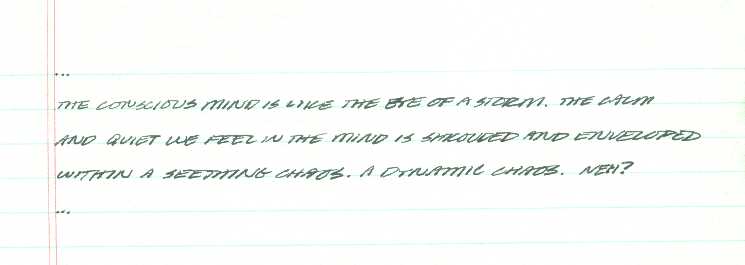 ...
THE CONSCIOUS MIND IS LIKE THE EYE OF A STORM. THE CALM
AND QUIET WE FEEL IN THE MIND IS SHROUDED AND ENVELOPED
WITHIN A SEETHING CHAOS. A DYNAMIC CHAOS. NEH?
...